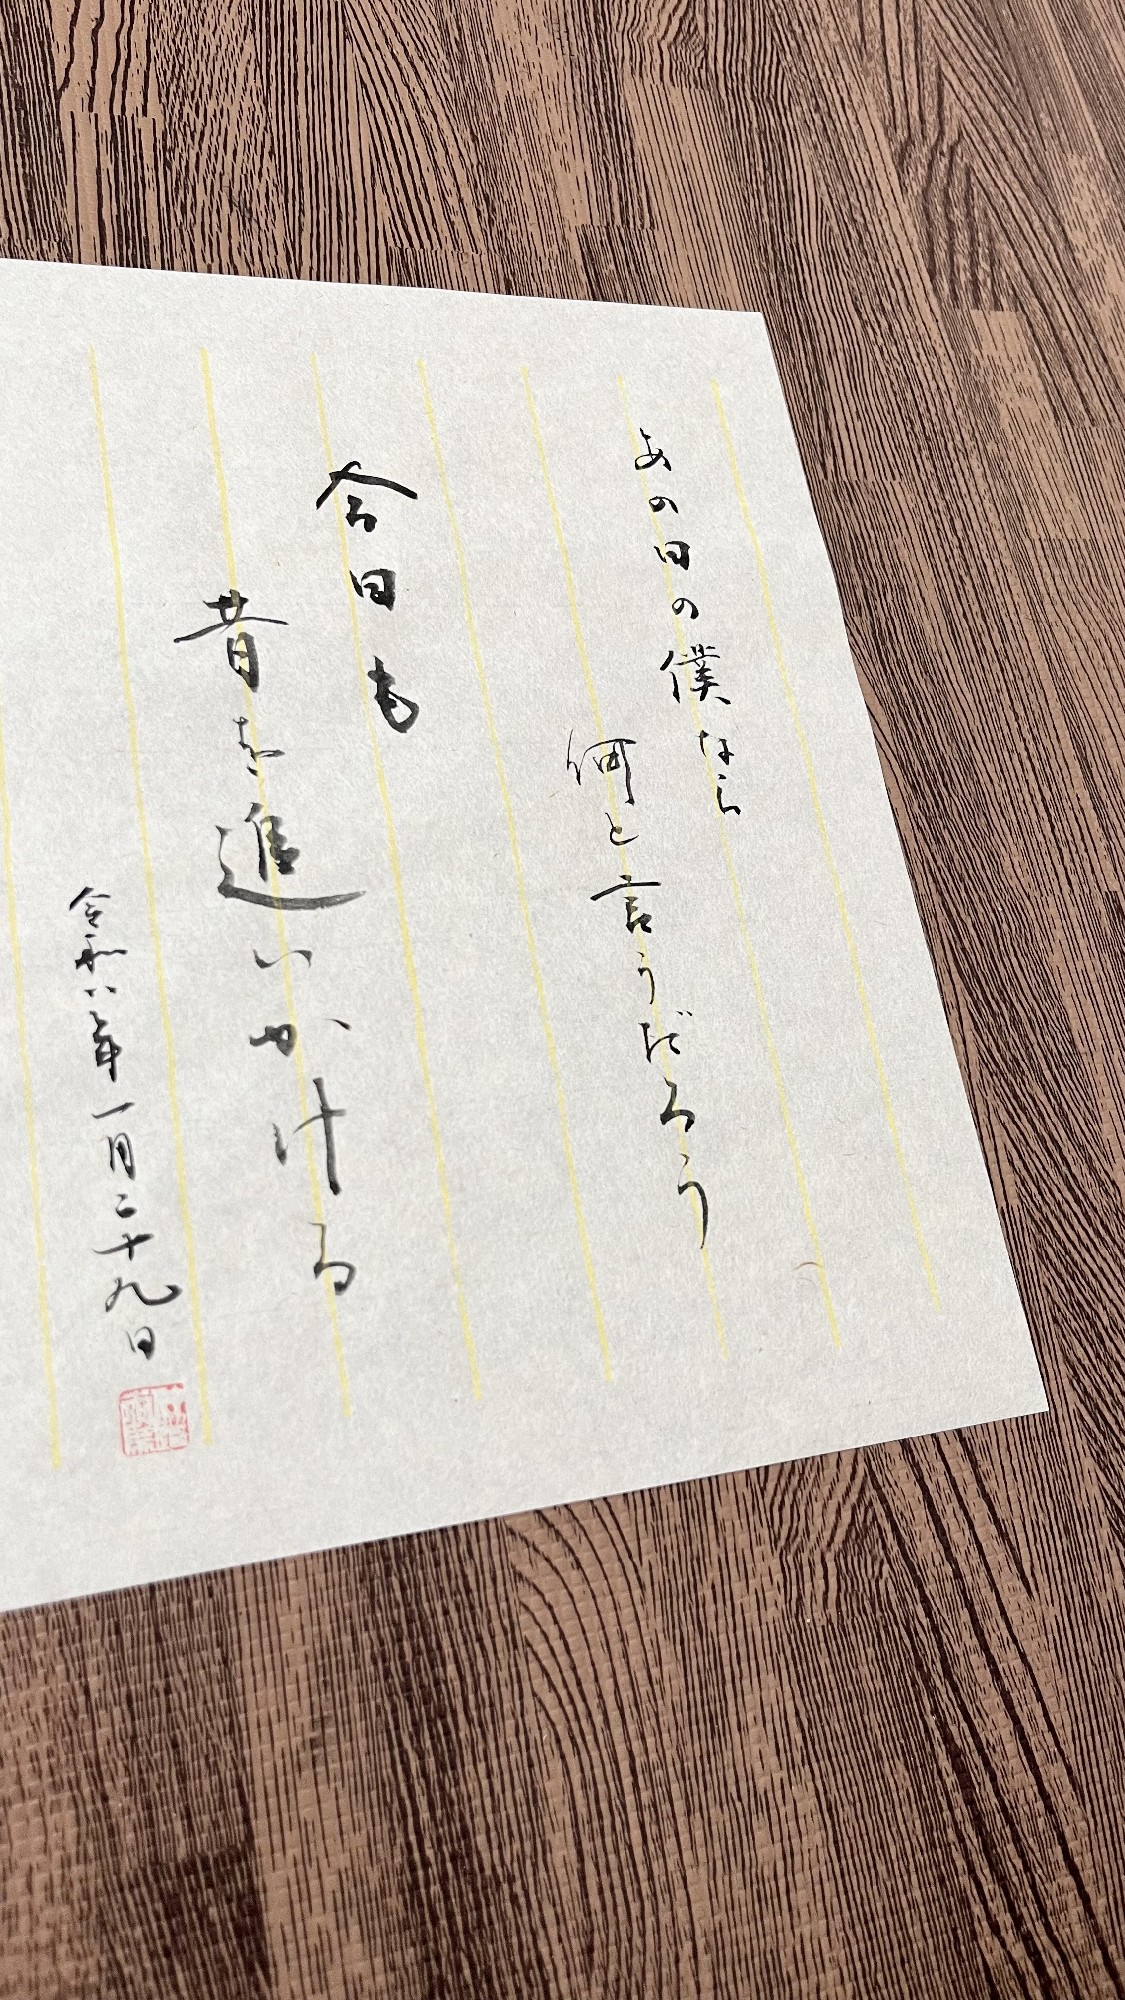 あの日の僕なら
何と言うだろう
今日も
昔を追いかける
令和八年一月二十九日